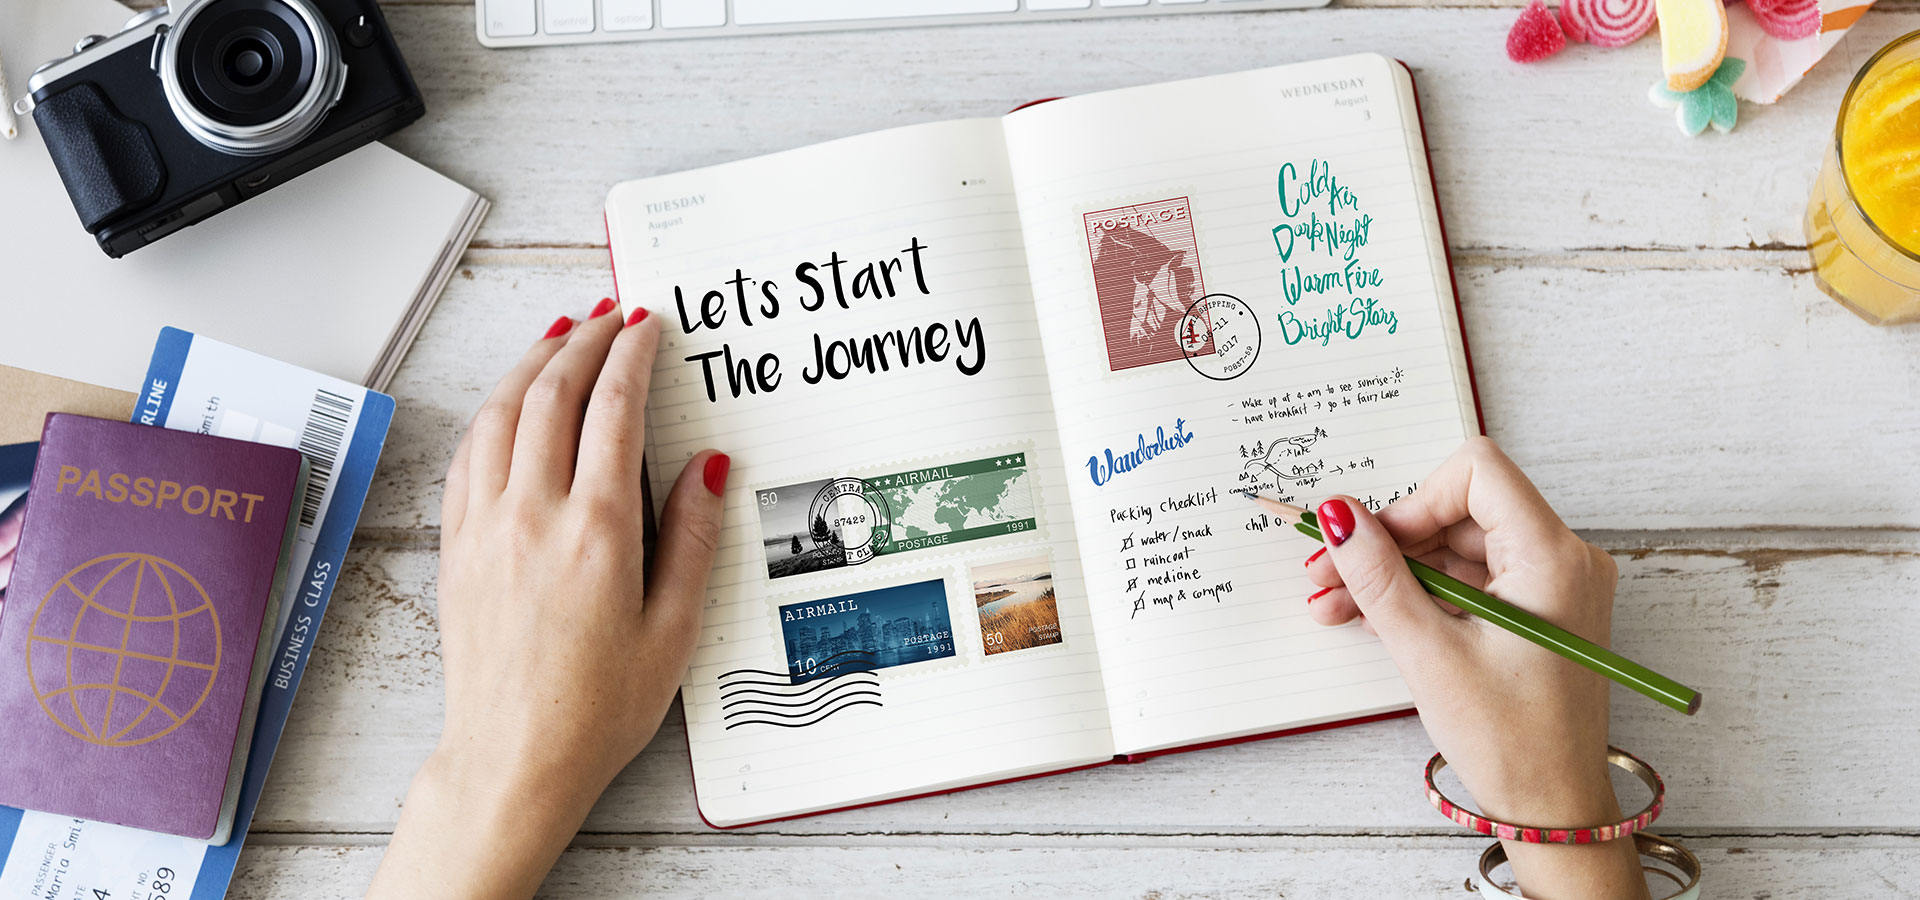 fn control option
TUESDAY
August
2
Let's Start
The Journey
50
CENT
CENTRAL
87429
AIRMAIL
POSTAGE
1991
POSTAGE
STAMP
AIRMAIL
10 CENT
POSTAGE
1991
50
CENT
POSTAGE
STAMP
WEDNESDAY
August
3
POSTAGE
2017
Cold Air
Dark Night
Warm Fire
Bright Stars
- Wake up at 4 am to see sunrise
- have breakfast → go to fairy Lake
lake
→ to city
village
campingsites
chill
Wanderlust
Packing Checklist
water / snack
raincoat
medicine
map & compass
PASSPORT
RLINE
Smith
BUSINESS CLASS
PASSENGER
Maria Smit
4
NO.
589